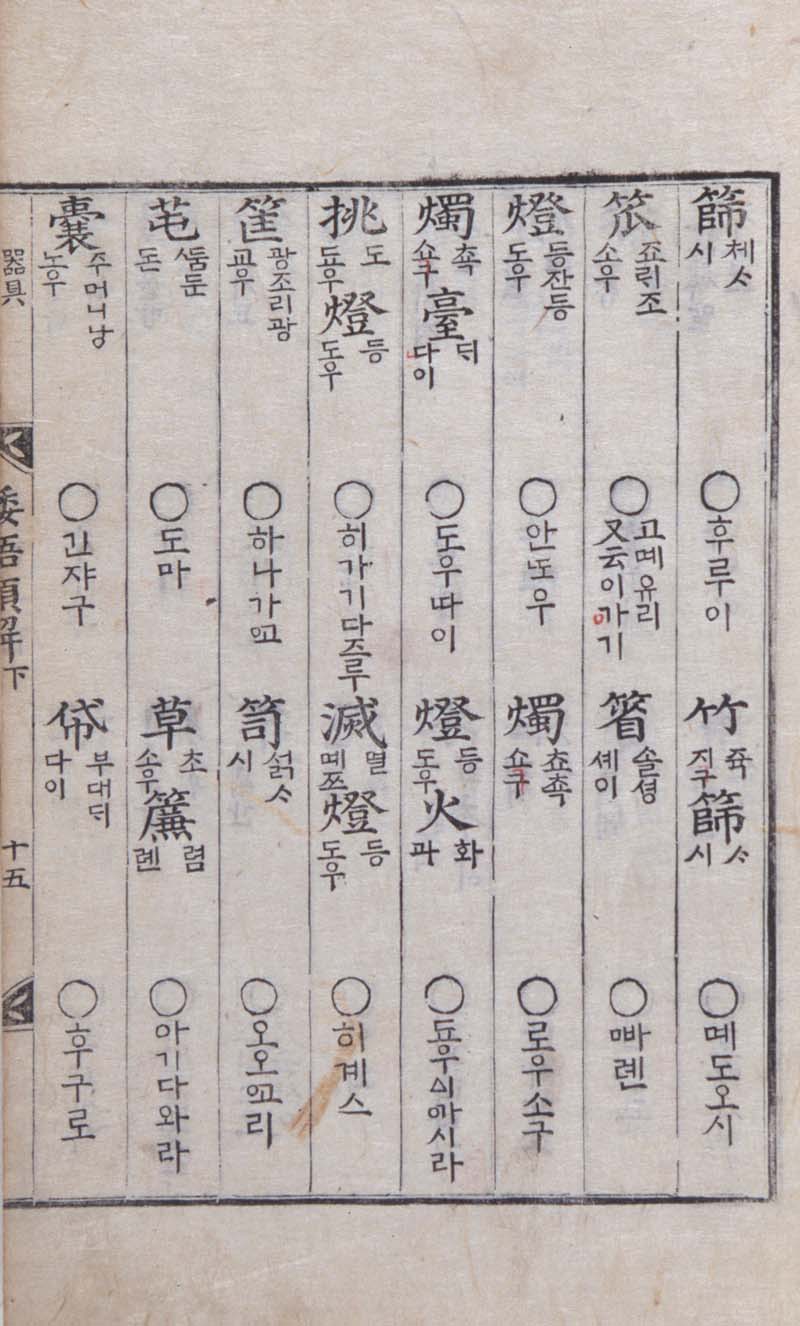 篩 체ᄉᆞ 시 ○후루이 竹 쥭 지구 篩 ᄉᆞ 시 ○메도오시
笊 죠릐조 소우 ○고메유리 又云이가기 箵 솔셩 셰이 ○ᄲᅡ렌
燈 등잔등 도우 ○안도우 燭 쵸쵹 쇼구 ○로우소구
燭 쵹 쇼구 臺 ᄃᆡ 다이 ○도우ᄯᅡ이 燈 등 도우 火 화 과 ○됴우
挑 도 됴우 燈 등 도우 ○히가기다즐루 滅 멸 몌쯔 燈 등 도우 ○히계스
筐 광조리광 교우 ○하나가ᅌᅩ 笥 섥ᄉᆞ 시 ○오오ᅌᅩ리
芚 ᄯᅳᆷ둔 돈 ○도마 草 초 소우 簾 렴 렌 ○아기다와라
囊 주머니낭 노우 ○긴쟈구 帒 부대ᄃᆡ 다이 ○후구로
器具 倭語類解下 十五